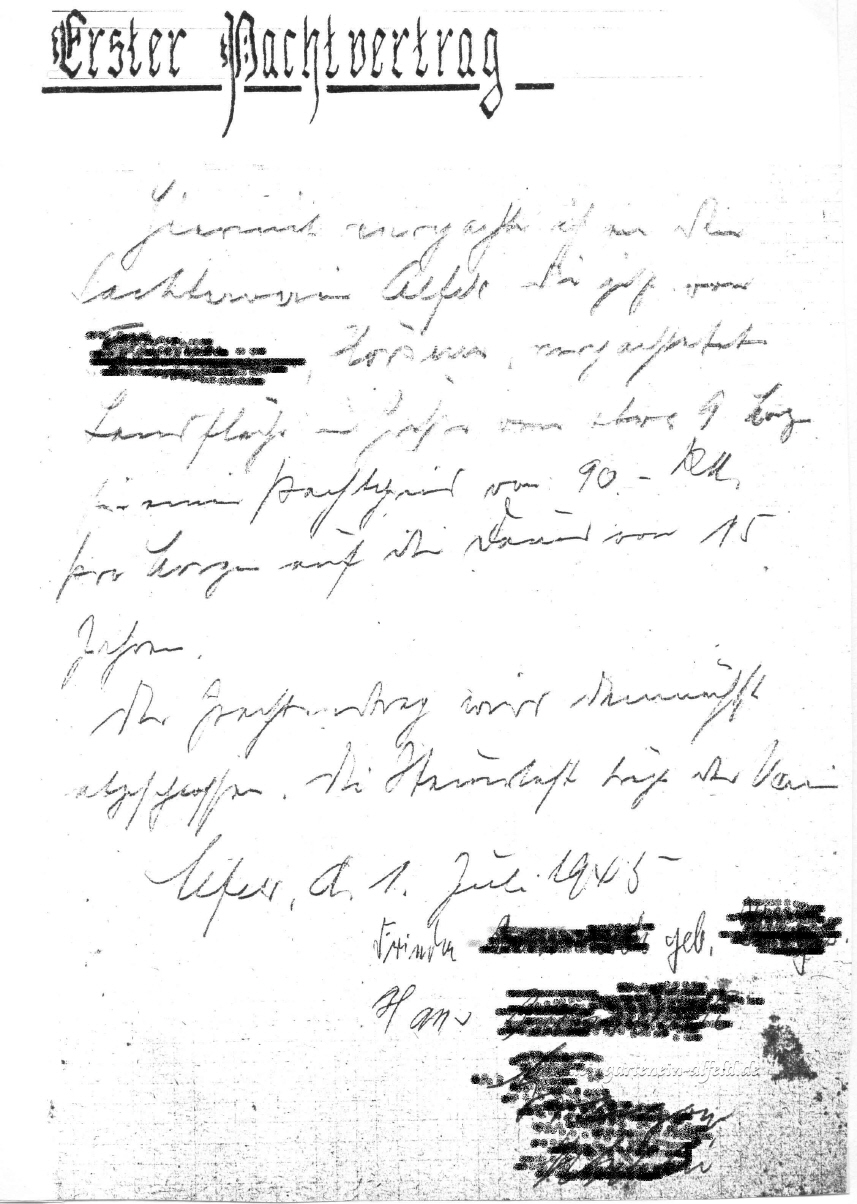 Erster Pachtvertrag
Hiermit verpachte ich an den
Gartenverein Alfeld die jetzt von
verpachtete
Landfläche in Höhe von etwa 9 Morg
für einen Pachtpreis von 90.- RM.
pro Morgen auf die Dauer von 15
Jahren.
Der Pachtvertrag wird demnächst
abgeschlossen. Die Steuerlast trägt der Verein
Alfeld, d. 1. Juli 1945
Frieda geb.
Hans
gartenein-alfeld.de